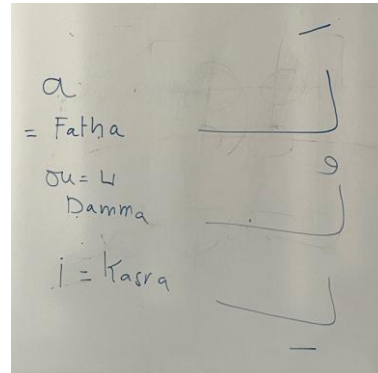 a
= Fatha
ou = u
Damma
i = Kasra